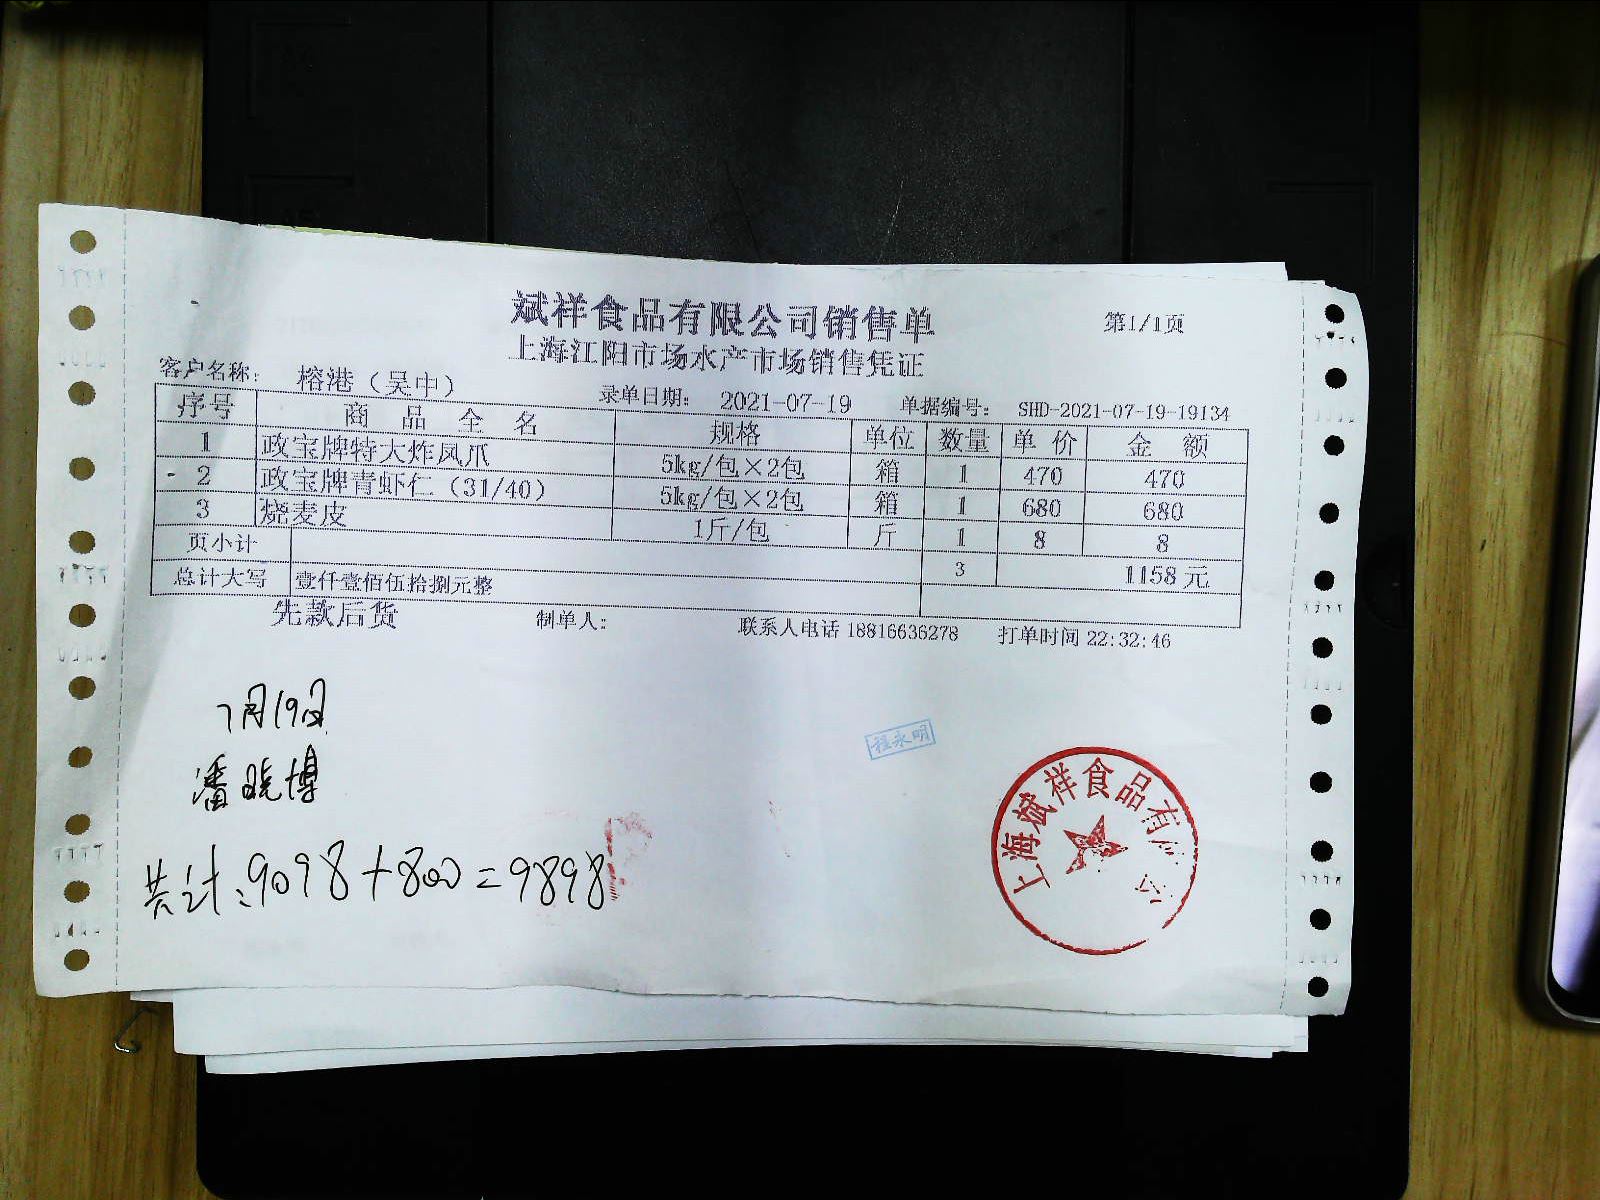 斌祥食品有限公司销售单
第1/1页
上海江阳市场水产市场销售凭证
客户名称: 榕港（吴中） 录单日期: 2021-07-19 单据编号: SHD-2021-07-19-19134
序号 商品全名 规格 单位 数量 单价 金额
1 政宝牌特大炸凤爪 5kg/包×2包 箱 1 470 470
2 政宝牌青虾仁（31/40） 5kg/包×2包 箱 1 680 680
3 烧麦皮 1斤/包 斤 1 8 8
页小计 3 1158元
总计大写 壹仟壹佰伍拾捌元整
先款后货 制单人: 联系人电话 18816636278 打单时间 22:32:46
7月19日
潘晓博
共计:9098+800=9898
程永明
上海斌祥食品有 公